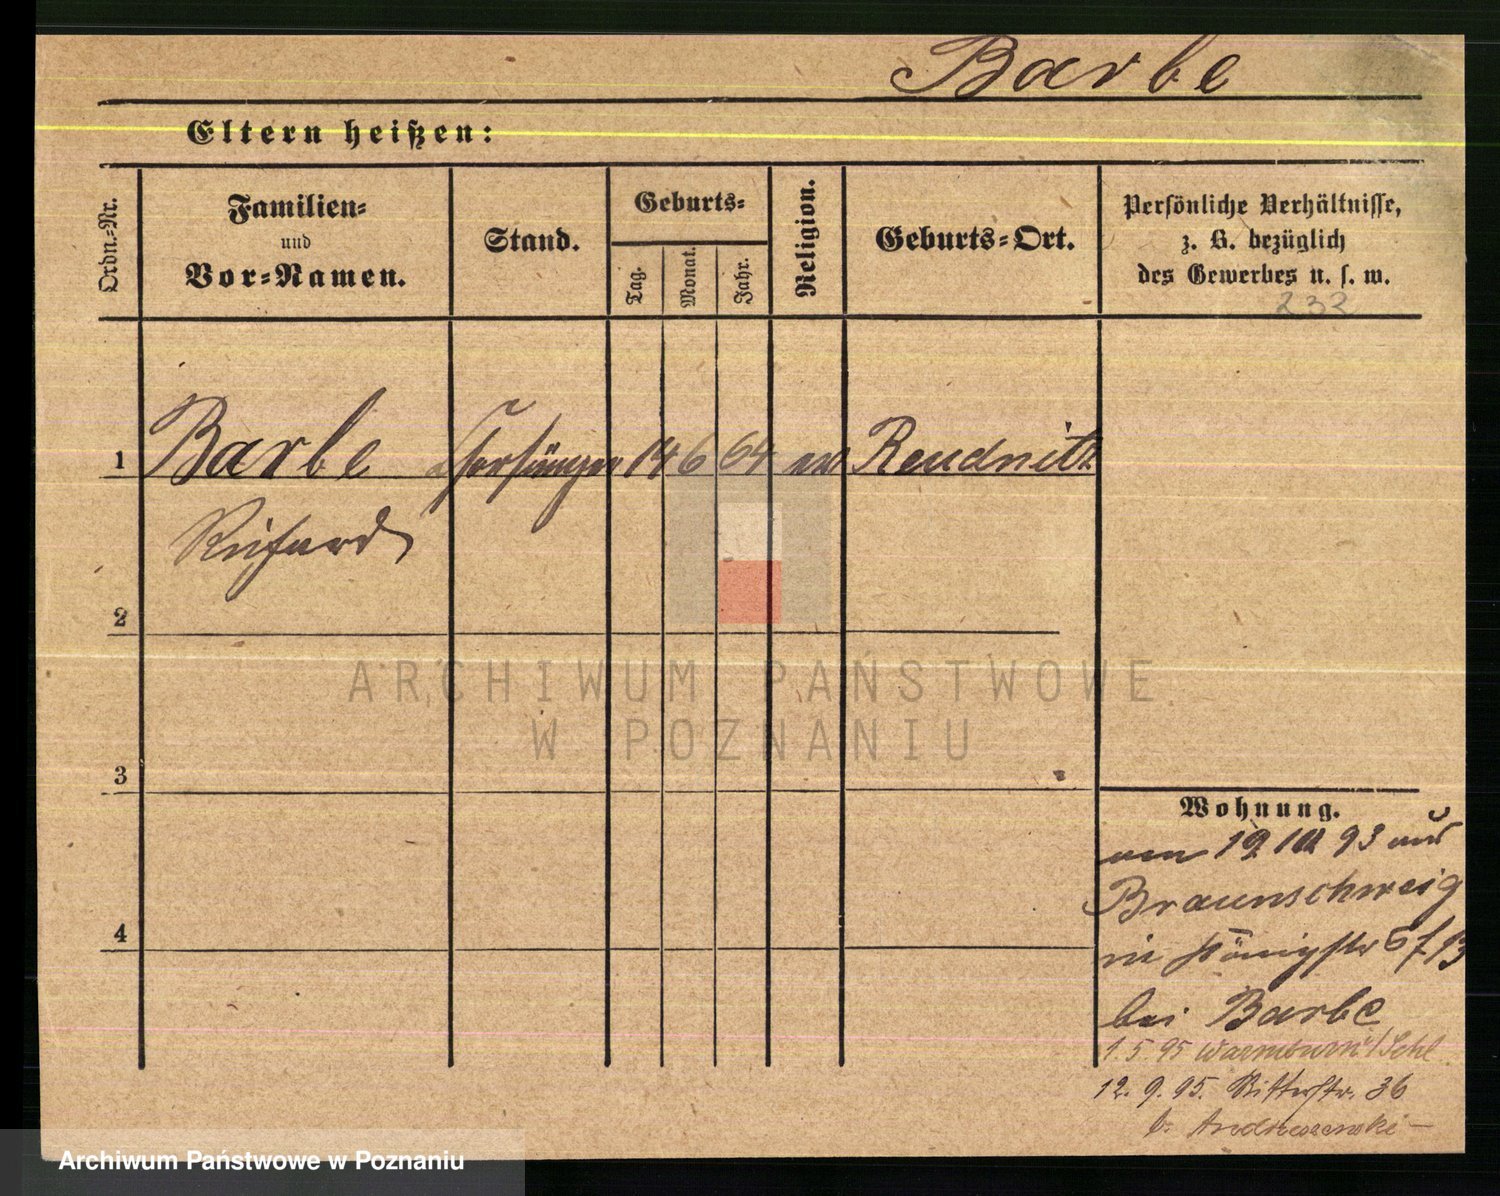 Barbe
Eltern heißen:
Ordn.-Nr.
Familien-
und
Vor-Namen.
Stand.
Geburts-
Tag.
Monat.
Jahr.
Religion.
Geburts-Ort.
Persönliche Verhältnisse,
z. B. bezüglich
des Gewerbes u. s. w.
232
1
Barbe Chorsänger 14 6 64 ev Reudnitz
Richard
2
3
4
Wohnung.
am 19 10 93 aus
Braunschweig
in Königstr 5 f 13
bei Barbe
1.5.95 Warmbrunn i/Schl
12.9.95. Ritterstr. 36
b.
ARCHIWUM PAŃSTWOWE
W POZNANIU
Archiwum Państwowe w Poznaniu